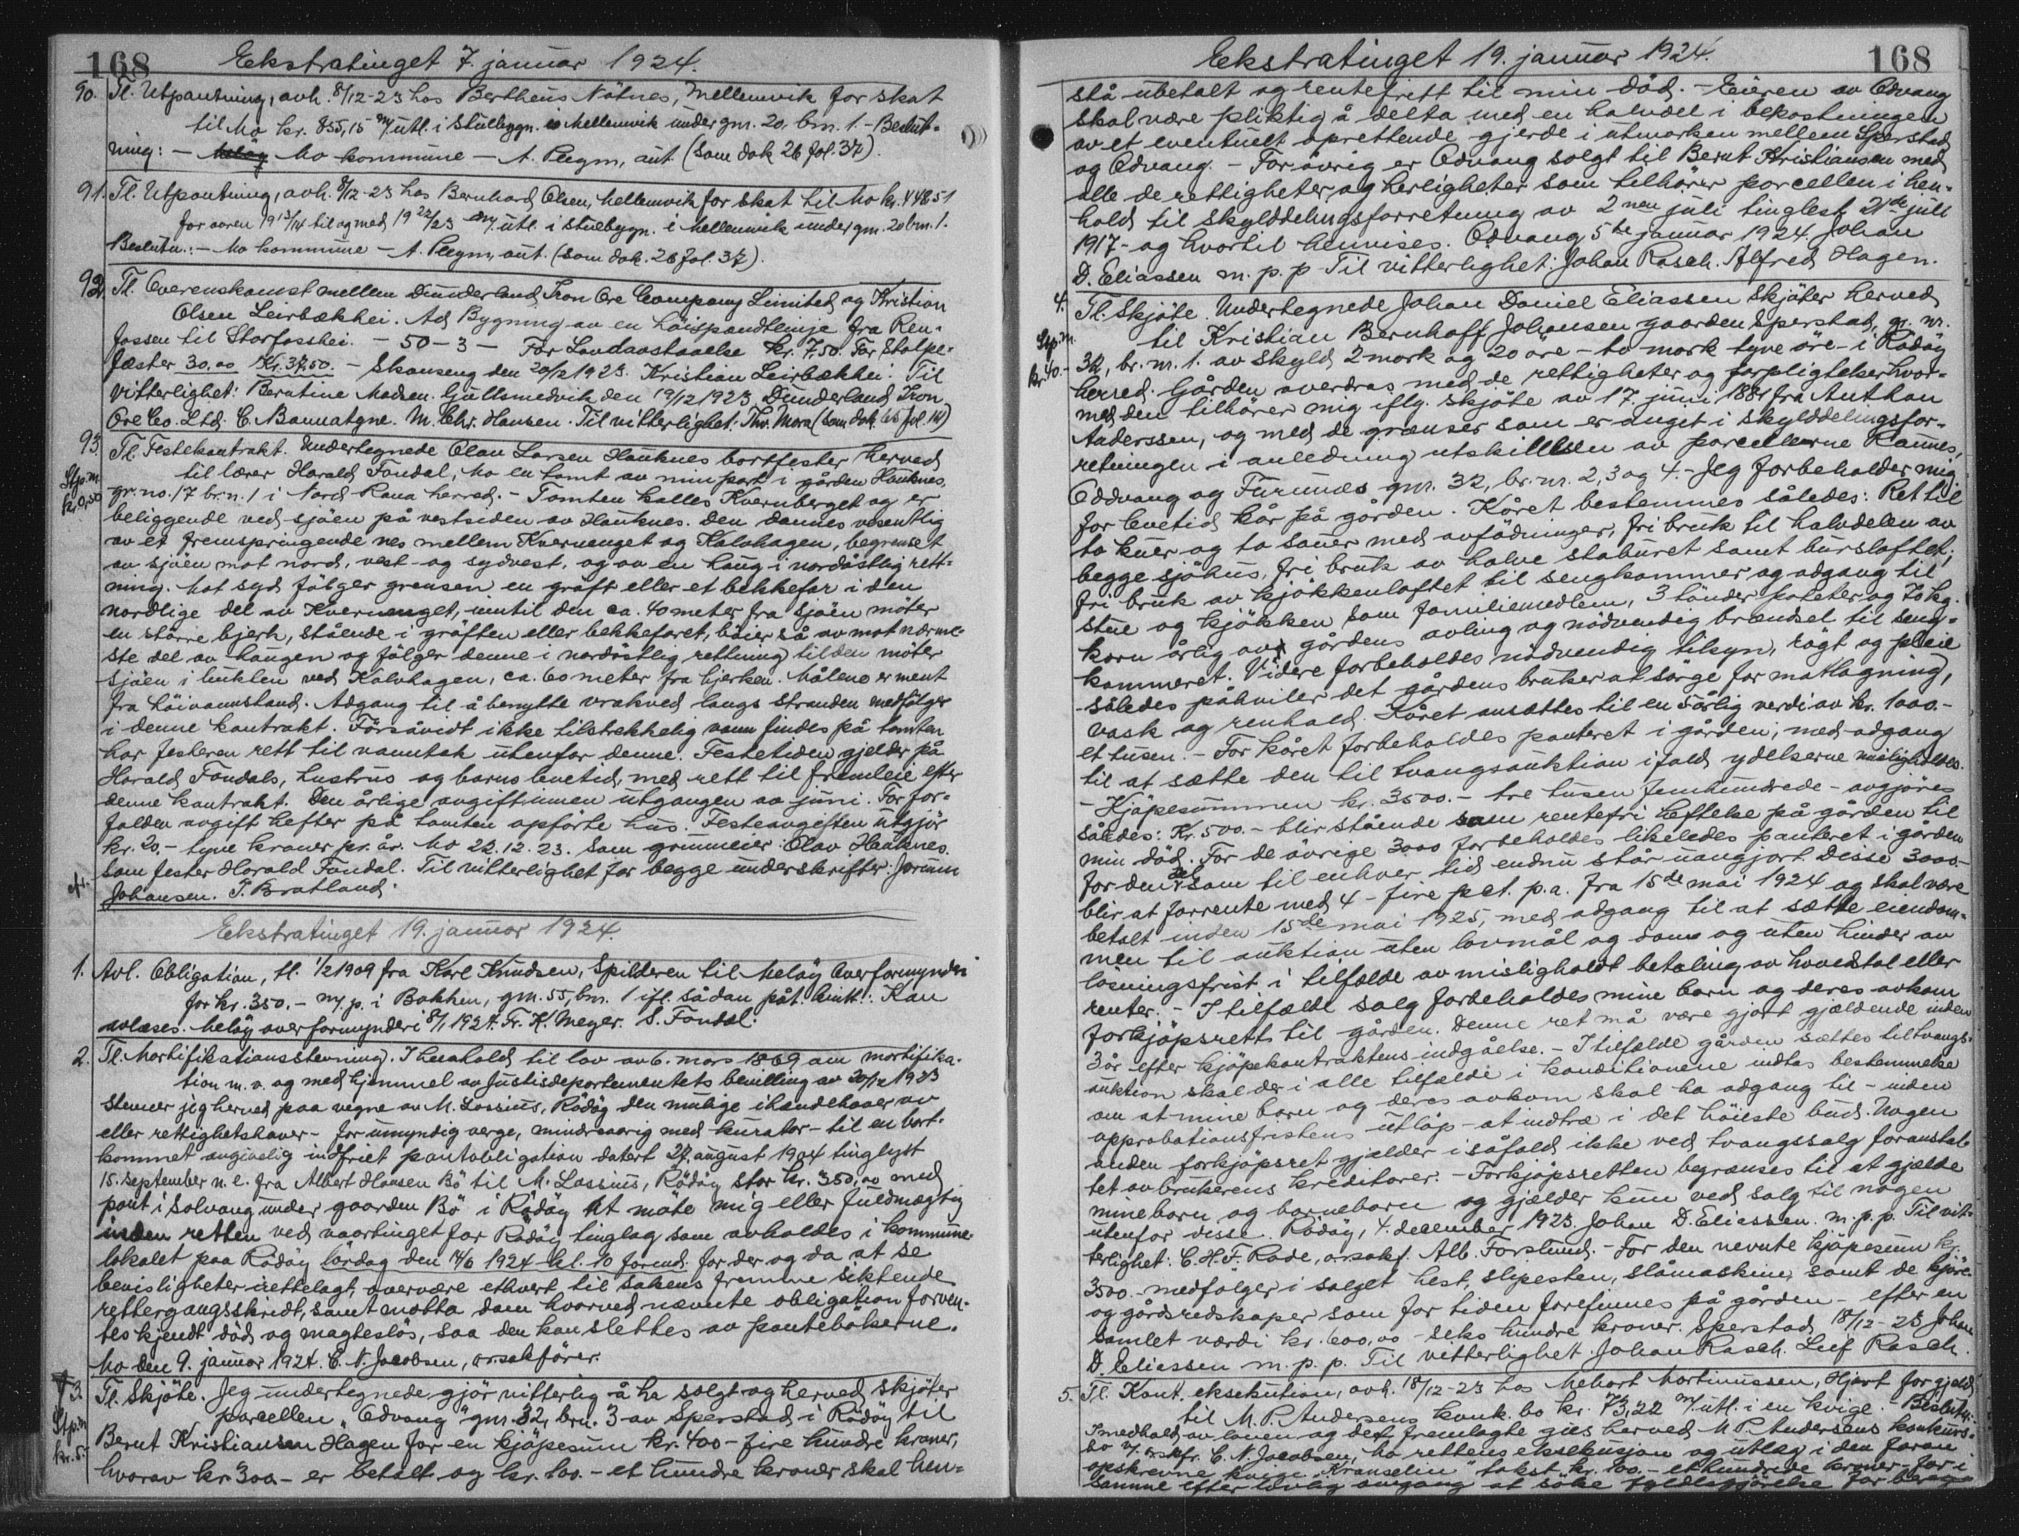 168 Ekstratinget 7. januar 1924.
90. Tl. Utpantning, avh. 8/12-23 hos Bertheus Nötnes, Mellemvik for skat
til Mo kr. 855,15 m/utl. i Stuebygn. i Mellemvik under gnr. 20, bnr. 1. - Beslut-
ning: - Mo kommune - A. Plegm, aut. (Som dok 26 fol. 37).
91. Tl. Utpantning, avh. 8/12-23 hos Bernhard Olsen, Mellemvik for skat til Mo kr. 448,51
for aaren 1913/14 til og med 1922/23 m/utl. i stuebygn. i Mellemvik under gnr. 20 bnr. 1.
Beslutn.: - Mo kommune - A. Plegm, aut. (Som dok. 26 fol. 37).
92. Tl. Overenskomst mellem Dunderland Iron Ore Company Limited og Kristian
Olsen Leirbækhei. Ad Bygning av en höispændtlinje fra Ren-
fossen til Storfosshei. - 50 - 3 - For Landavstaaelse kr. 7.50. For Stolpe-
fæster 30,00 Kr. 37,50. - Skonseng den 20/12 1923. Kristian Leirbækhei. Til
vitterlighet: Berntine Madsen. Gullsmedvik den 19/12 1923 Dunderland Iron
Ore Co. Ltd. C. Bannatyne. M. Chr. Hansen. Til vitterlighet: Thv. Mora (Som dok 66 fol. 14)
93. Tl. Festekontrakt. Undertegnede Olav Larsen Hauknes bortfester herved
Stp.m. til lærer Harald Fondal, Mo en tomt av min part i gården Hauknes,
kr. 0,50 gr. no. 17 br. n. 1 i Nord Rana herred. - Tomten kalles Kvernberget og er
beliggende ved sjöen på vestsiden av Hauknes. Den dannes vesentlig
av et fremspringende nes mellem Kvernenget og Kalvhagen, begrenset
av sjöen mot nord, vest- og sydvest, og av en haug i nordöstlig rett-
ning. Mot syd fölger grensen en gröft eller et bekkefar i den
nordlige del av Kvernenget, inntil den ca. 40 meter fra sjöen möter
en större bjerk, stående i gröften eller bekkefaret, böier så av mot nærme-
ste del av haugen og fölger denne i nordöstlig rettning til den möter
sjöen i bukten ved Kalvhagen, ca. 60 meter fra bjerken. Målene er ment
fra höivannstand. Adgang til å benytte vrakved langs stranden medfölger
i denne kontrakt. Forsåvidt ikke tilstrekkelig vann findes på tomten
har festeren rett til vanntak utenfor denne. Festetiden gjelder på
Harald Fondals, hustrus og barns levetid, med rett til fremleie efter
denne kontrakt. Den årlige avgift innen utgangen av juni. For for-
falden avgift hefter på tomten opförte hus. Festeavgiften utgjör
kr. 20,- tyve kroner pr. år. Mo 22.12.23. Som grunneier: Olav Hauknes.
Som fester Harald Fondal. Til vitterlighet for begge underskrifter: Jorunn
Johansen. T. Bratland.
Ekstratinget 19. januar 1924.
1. Avl. Obligation, tl. 1/2 1909 fra Karl Knudsen, Spilderen til Melöy Overformynderi
for kr. 350.- m/p. i Bakken, gnr. 55, bnr. 1 ifl. sådan påt. kvitt.: Kan
avlæses. Melöy overformynderi 8/1 1924. Fr. K. Meyer. S. Fondal.
2. Tl. Mortifikationsstevning. I henhold til lov av 6. mars 1869 om mortifika-
tion m. v. og med hjemmel av Justisdepartementets bevilling av 20/12 1923
stevner jeg herved paa vegne av M. Lossius, Rödöy den mulige ihændehaver av
eller rettighetshaver - for umyndig verge, mindreaarig med kurator - til en bort-
kommet angivelig indfriet pantobligation datert 27 august 1904 tinglyst
15. september n. e. fra Albert Hansen Bö til M. Lossius, Rödöy stor kr. 350,00 med
pant i Solvang under gaarden Bö i Rödöy at möte mig eller fuldmægtig
inden retten ved vaartinget for Rödöy tinglag som avholdes i kommune-
lokalet paa Rödöy lördag den 14/6 1924 kl. 10 formd. for der og da at se
bevisligheter rettelagt, overvære ethvert til sakens fremme siktende
rettergangsskridt, samt motta dom hvorved nævnte obligation forven-
tes kjendt död og magteslös, saa den kan slettes av pantebökerne.
Mo den 9. januar 1924. C. N. Jacobsen, o.r.sakförer.
3. Tl. Skjöte. Jeg undertegnede gjör vitterlig å ha solgt og herved skjöter
Stp.m. parcellen "Odvang" gnr. 32, bnr. 3 av Sperstad i Rödöy til
kr. 5.- Bernt Kristiansen Hagen for en kjöpesum kr. 400 - fire hundre kroner,
hvorav kr. 300.- er betalt og kr. 100.- et hundre kroner skal hen-
Ekstratinget 19. januar 1924. 168
stå ubetalt og rentefritt til min död. - Eieren av Odvang
skal være pliktig å delta med en halvdel i bekostningen
av et eventuelt oprettende gjerde i utmarken mellem Sperstad
og Odvang. - For övrig er Odvang solgt til Bernt Kristiansen med
alle de rettigheter og herligheter som tilhörer parcellen i hen-
hold til skylddelingsforretning av 2nen juli tinglest 21de juli
1917 - og hvortil henvises. Odvang 5te januar 1924. Johan
D. Eliassen m. p. p. Til vitterlighet: Johan Rasch. Alfred Hagen.
4. Tl. Skjöte. Undertegnede Johan Daniel Eliassen skjöter herved
Stp.m. til Kristian Bernhoff Johansen gaarden Sperstad, gr. nr.
kr. 40.- 32, br. nr. 1. av skyld 2 mark og 20 öre - to mark tyve öre - i Rödöy
herred. Gården overdras med de rettigheter og forpligtelser hvor-
med den tilhörer mig iflg. skjöte av 17. juni 1881 fra Anthon
Anderssen, og med de grænser som er anget i skylddelingsfor-
retningen i anledning utskillelsen av parcellerne Ramnes,
Oddvang og Furunes gnr. 32, br. nr. 2, 3 og 4. - Jeg forbeholder mig
for levetid kår på gården. Kåret bestemmes således: Ret til
to kuer og to sauer med avfödninger, fri bruk til halvdelen av
begge sjöhus, fri bruk av halve staburet samt bursloftet;
fri bruk av kjökkenloftet til sengkammer og adgang til
stue og kjökken som familiemedlem, 3 tönder poteter og 70 kg.
korn årlig av gårdens avling og nödvendig brændsel til seng-
kammeret. Videre forbeholdes nödvendig tilsyn, rögt og pleie
- således påhviler det gårdens bruker at sörge for matlagning,
vask og renhold. Kåret ansættes til en 5årlig verdi av kr. 1000.-
et tusen. - For kåret forbeholdes panteret i gården, med adgang
til at sætte den til tvangsauktion ifald ydelserne misligholdes.
- Kjöpesummen kr. 3500.- tre tusen femhundrede - avgjöres
således: Kr. 500.- blir stående som rentefri heftelse på gården til
min död. For de övrige 3000 forbeholdes likeledes panteret i gården
for den del som til enhver tid endnu står uavgjort. Disse 3000.-
blir at forrente med 4 - fire pct. p. a. fra 15de mai 1924 og skal være
betalt inden 15de mai 1925, med adgang til at sætte eiendom-
men til auktion uten lovmål og dom og uten hinder av
lösningsfrist i tilfælde av misligholdt betaling av hovedstol eller
renter. - I tilfælde salg forbeholdes mine barn og deres avkom
forkjöpsrett til gården. Denne ret må være gjort gjældende inden
3 år efter kjöpekontraktens indgåelse. - I tilfælde gården sættes til tvangs-
auktion skal der i alle tilfælde i konditionene indtas bestemmelse
om at mine barn og deres avkom skal ha adgang til - inden
approbationsfristens utlöp - at indtræ i det höieste bud. Nogen
anden forkjöpsret gjælder i såfald ikke ved tvangssalg foranstal-
tet av brukerens kreditorer. - Forkjöpsretten begrænses til at gjælde
mine barn og barnebarn og gjælder kun ved salg til nogen
utenfor disse. Rödöy, 4. december 1923. Johan D. Eliassen. m. p. p. Til vit-
terlighet: C. H. F. Rode, o.r.sakf. Alb. Forslund. - For den nevnte kjöpesum kr.
3500.- medfölger i salget hest, slipesten, slåmaskine, samt de kjöre-
og gårdsredskaper som for tiden forefinnes på gården - efter en
samlet værdi kr. 600,00 - seks hundre kroner. Sperstad, 18/12-23 Johan
D. Eliassen m. p. p. Til vitterlighet: Johan Rasch. Leif Rasch.
5. Tl. Kont. eksekution, avh. 18/12-23 hos Mehart Martinussen, Hjart for gjeld
til M. P. Andersens konk. bo kr. 73,22 m/utl. i en kvige. - Beslutn.:
I medhold av loven og det fremlagte gis herved M P. Andersens konkurs-
bo v/ o.r.skfr. C. N. Jacobsen, Mo rettens eksekusjon og utlæg i den foran
opskrevne kvige "Kranselin" takst kr. 100.- et hundrede kroner - for i
samme efter lovlig omgang at söke fyldestgjörelse for